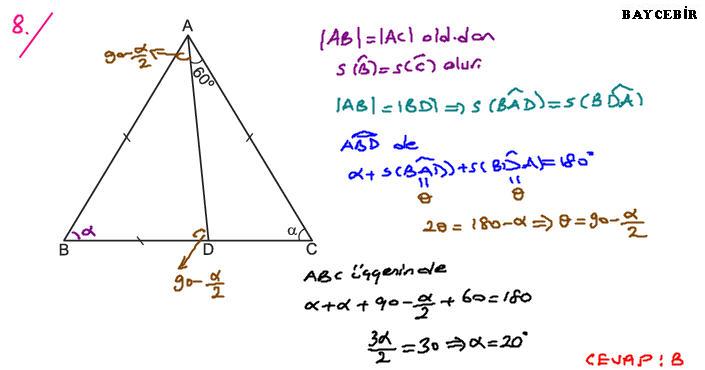 BAYCEBİR
8./
A
90-α/2
60°
B
α
D
α
C
90-α/2
|AB|=|AC| old.dan
s(B̂)=s(Ĉ) olur.
|AB|=|BD| ⇒ s(BÂD)=s(BD̂A)
ABD de
α+s(BÂD)+s(BD̂A)=180°
= =
θ θ
2θ=180-α ⇒ θ=90-α/2
ABC üçgeninde
α+α+90-α/2+60=180
3α/2=30 ⇒ α=20°
CEVAP: B